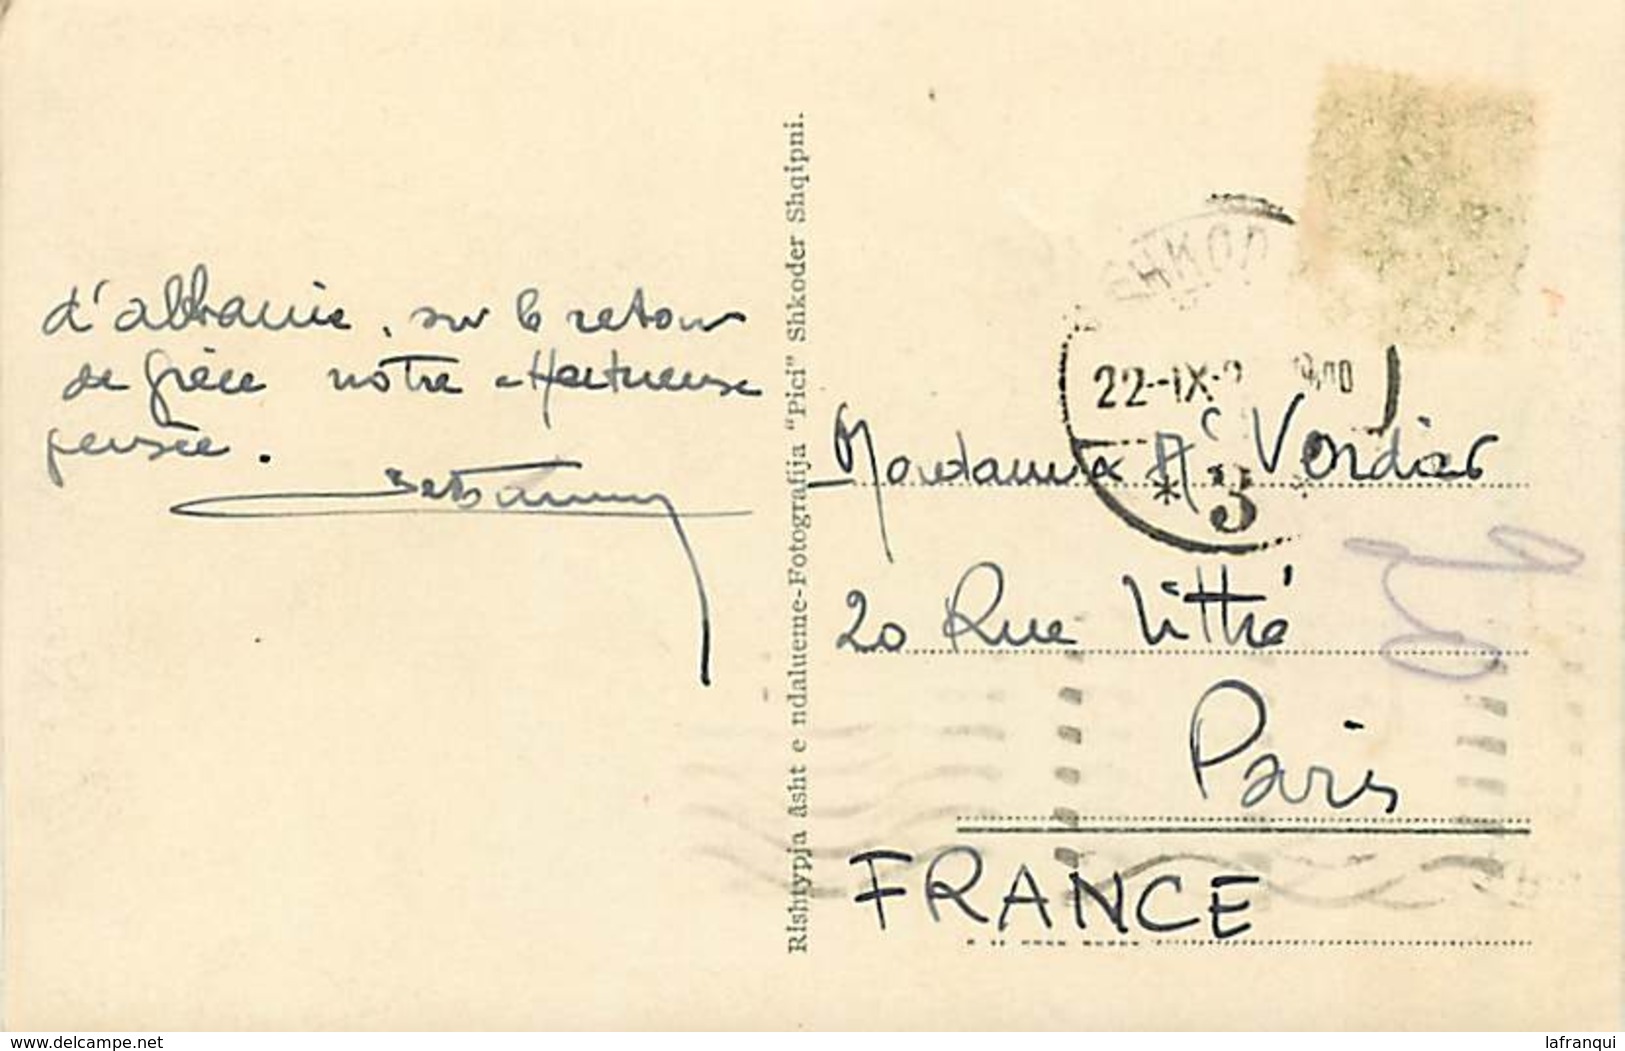 d'albanie, sur le retour
de Grèce notre affectueuse
pensée.
Rishtypja âsht e ndalueme-Fotografija "Pici" Shkoder Shqipni.
SHKOD
22-IX-3
3
Madame Mc Verdier
20 Rue Littré
Paris
FRANCE
www.delcampe.net
lafranqui